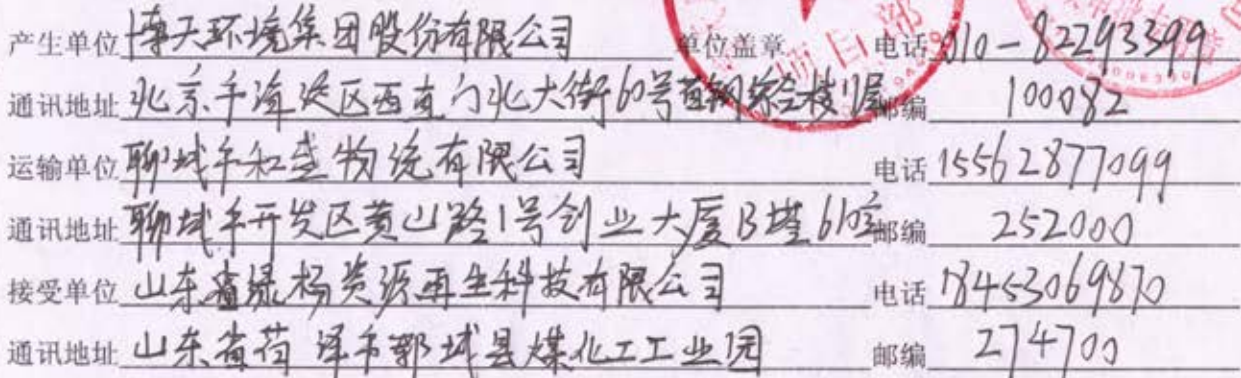 产生单位 博天环境集团股份有限公司 单位盖章 电话 010-82293399
通讯地址 北京市海淀区西直门北大街60号首钢综合楼11层 邮编 100082
运输单位 聊城市和盛物流有限公司 电话 15562877099
通讯地址 聊城市开发区黄山路1号创业大厦B塔610室 邮编 252000
接受单位 山东省绿杨资源再生科技有限公司 电话 18453069870
通讯地址 山东省菏泽市郓城县煤化工工业园 邮编 274700
项目部